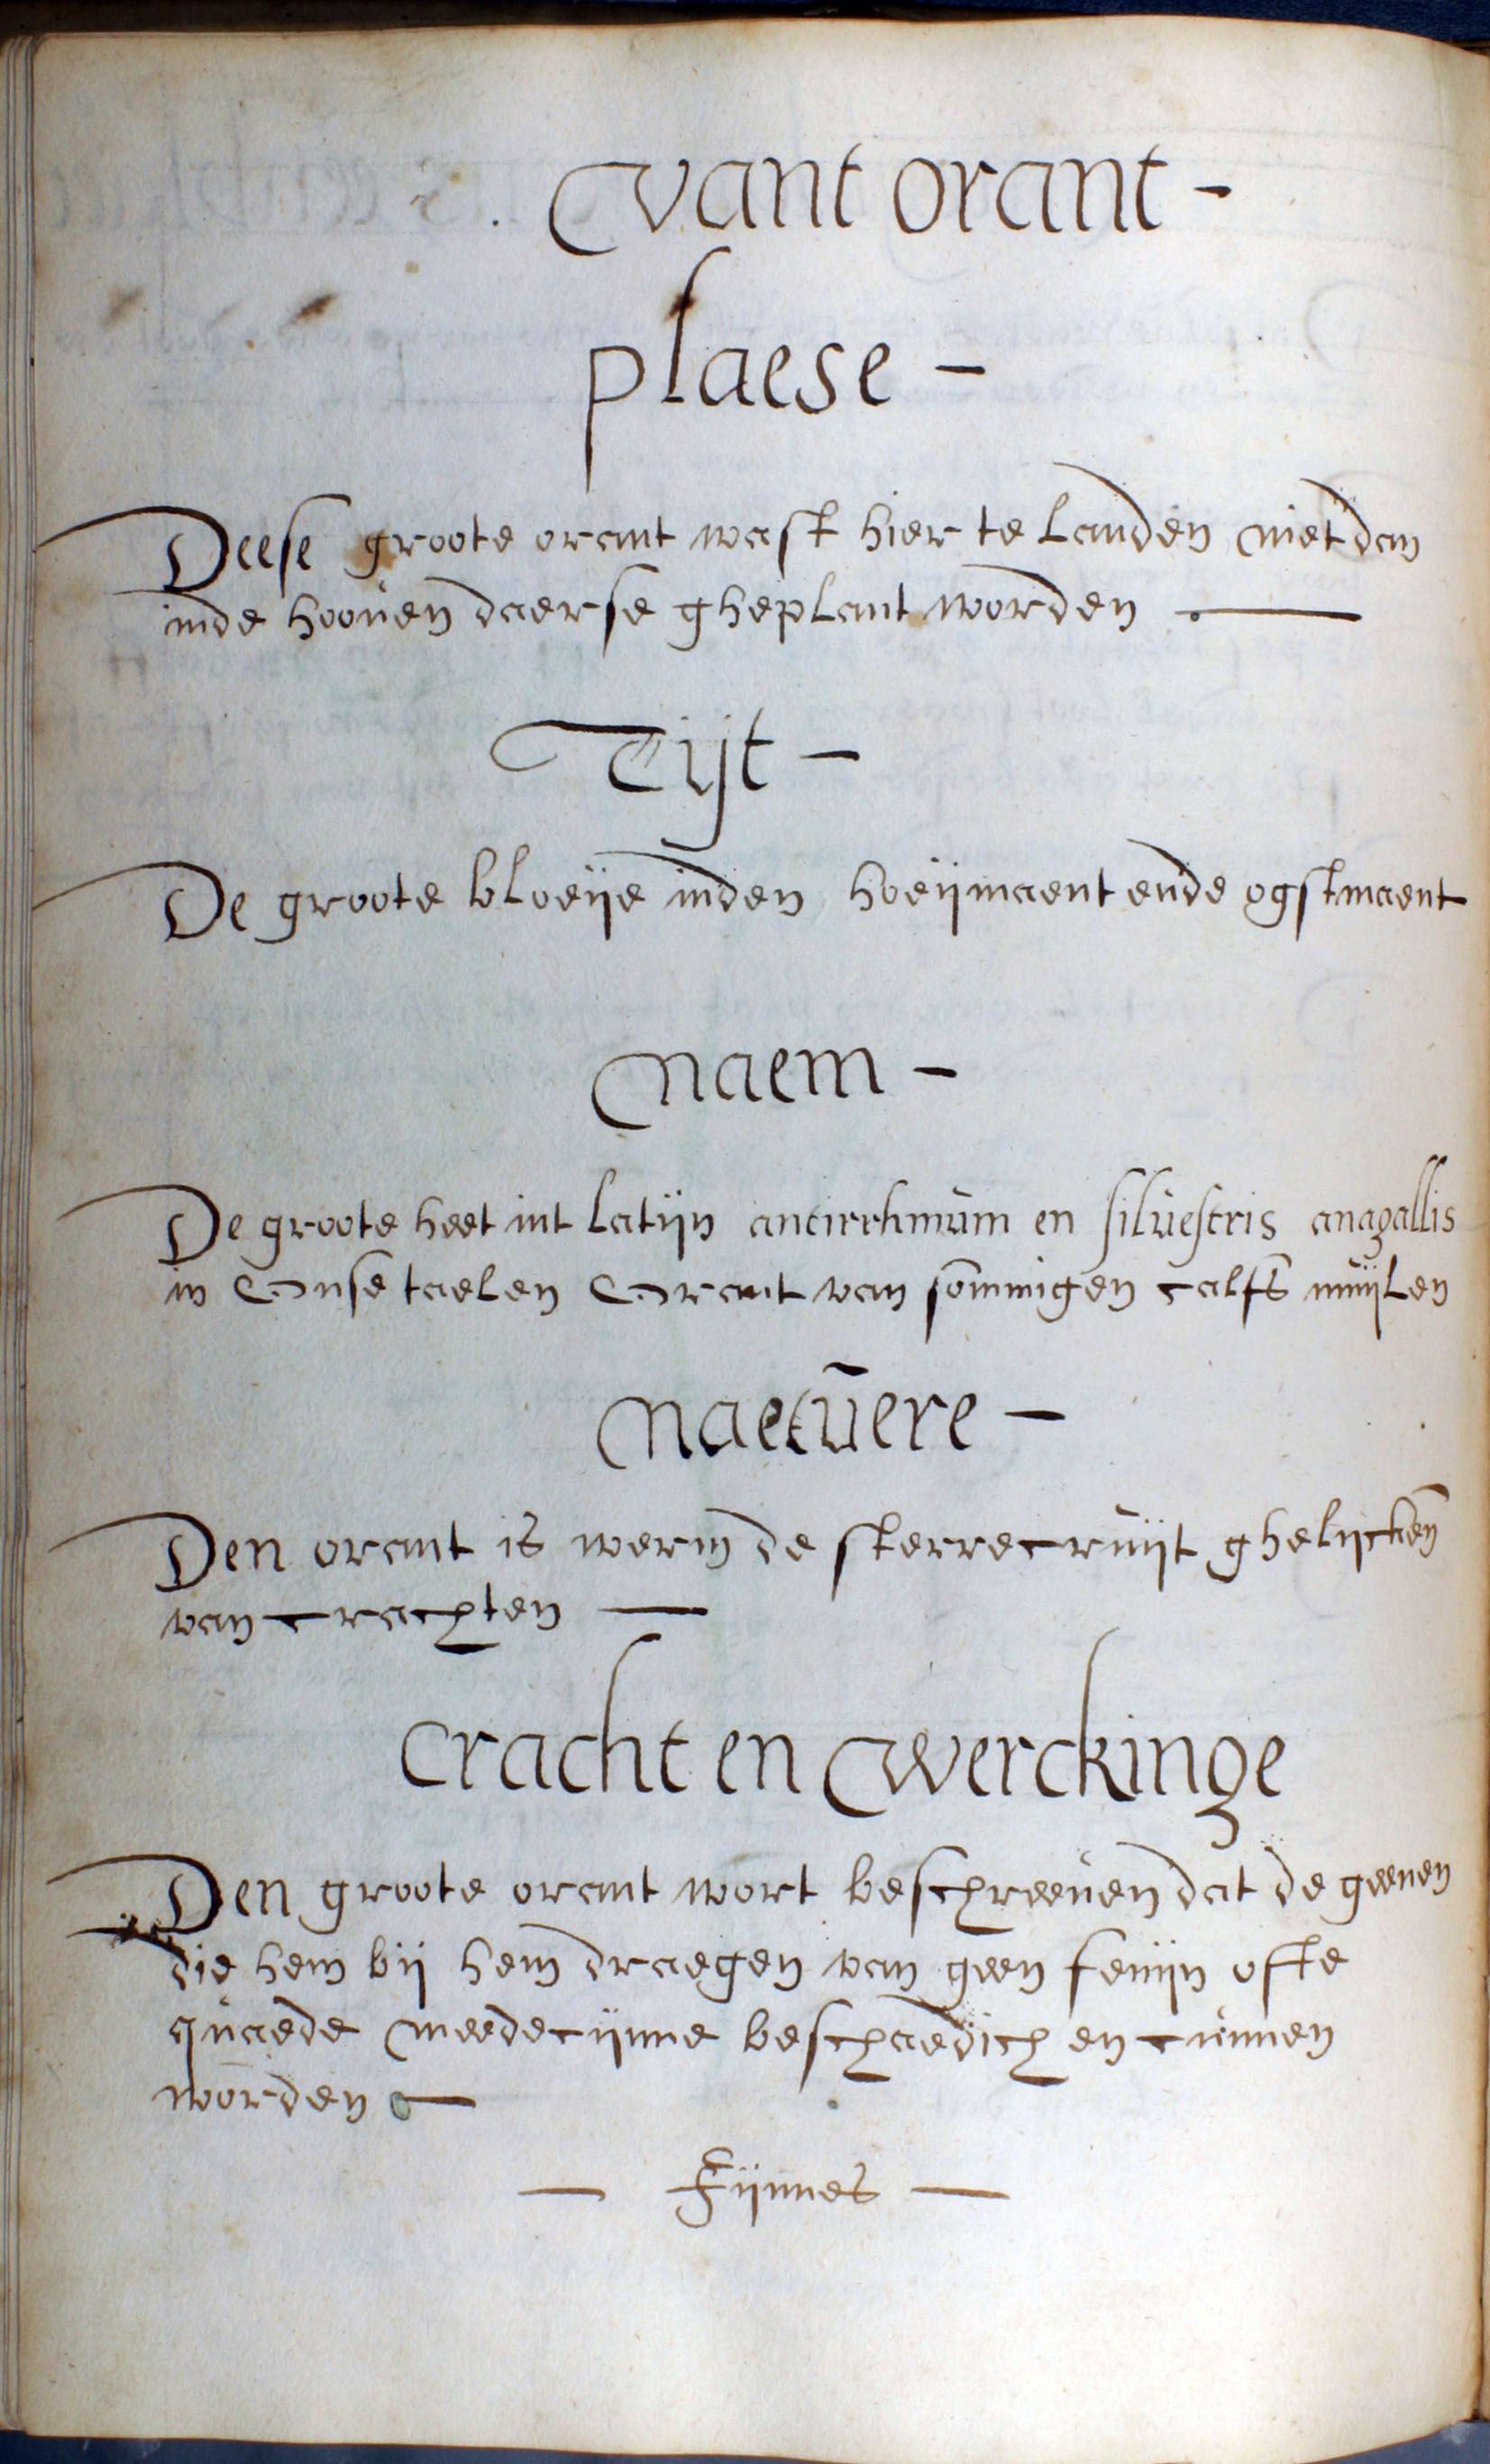 vant orant -
plaese -
Deese groote orant wast hier te landen niet dan
inde hooven daerse gheplant worden . —
Tijt -
De groote bloeije inden hoeijmaent ende ogstmaent
naem -
De groote heet int latijn antirrhinum en silvestris anagallis
in onse taelen orant van sommigen calfs muijlen
naetuere -
Den orant is werm de sterrecruijt ghelijcken
van crachten —
cracht en werckinge
Den groote orant wort beschreeven dat de geenen
die hem bij hem draegen van geen fenijn ofte
quaede meedecijnne beschaedich en cunnen
worden —
— Fijnnes —